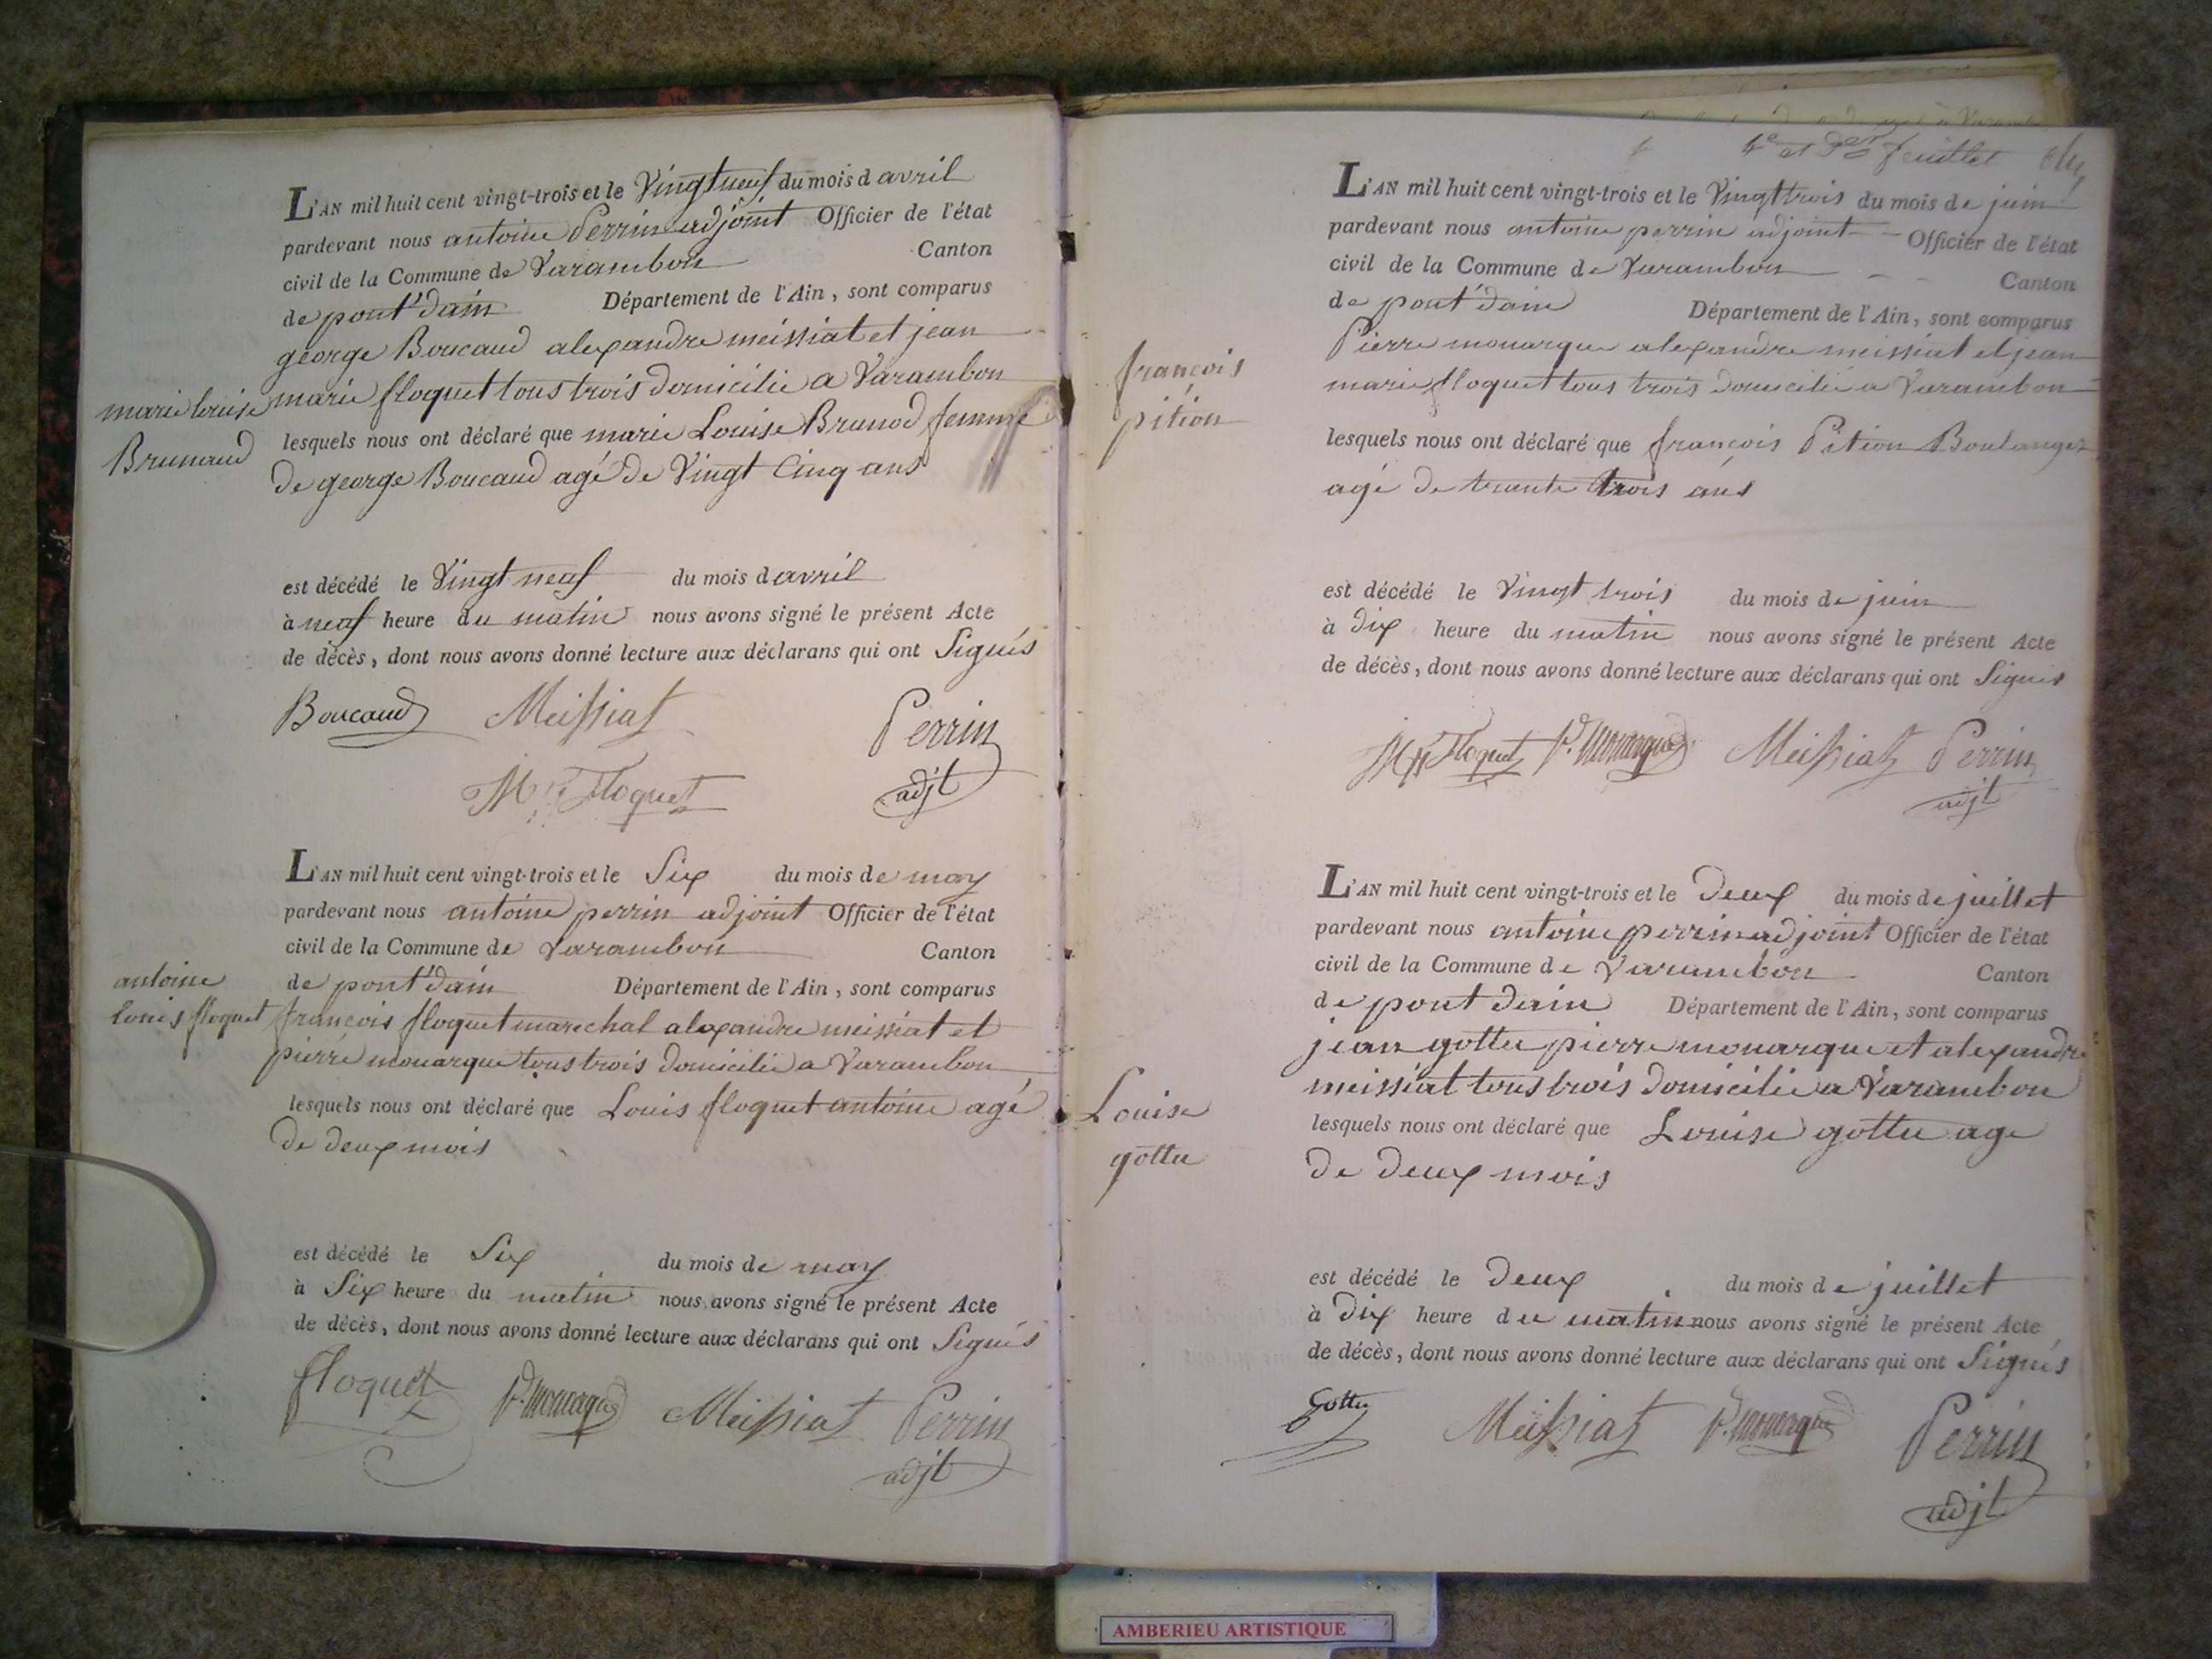 L'AN mil huit cent vingt-trois et le Vingt neuf du mois d avril
pardevant nous antoine Perrin adjoint Officier de l'état
civil de la Commune de Varambon Canton
de pont d'ain Département de l'Ain, sont comparus
george Boucaud alexandre meissiat et jean
marie floquet tous trois domicilie a Varambon
marie louise
Brunaud
lesquels nous ont déclaré que marie Louise Brunod femme
de george Boucaud agé de Vingt Cinq ans
est décédé le Vingt neuf du mois d avril
à neuf heure du matin nous avons signé le présent Acte
de décès, dont nous avons donné lecture aux déclarans qui ont Signés
Boucaud Meissiat Perrin
M Floquet adjt
L'AN mil huit cent vingt-trois et le Six du mois de may
pardevant nous antoine perrin adjoint Officier de l'état
civil de la Commune de Varambon Canton
antoine
louis floquet
de pont d'ain Département de l'Ain, sont comparus
francois floquet marechal alexandre meissiat et
pierre monarque tous trois domicilie a Varambon
lesquels nous ont déclaré que Louis floquet antoine agé
de deux mois
est décédé le Six du mois de may
à Six heure du matin nous avons signé le présent Acte
de décès, dont nous avons donné lecture aux déclarans qui ont Signés
floquet P. Monarque Meissiat Perrin
adjt
4e et der feuillet
L'AN mil huit cent vingt-trois et le Vingt trois du mois de juin
pardevant nous antoine perrin adjoint Officier de l'état
civil de la Commune de Varambon Canton
de pont d'ain Département de l'Ain, sont comparus
Pierre monarque alexandre meissiat et jean
marie floquet tous trois domicilié a Varambon
françois
pition
lesquels nous ont déclaré que françois Pition Boulanger
agé de trante trois ans
est décédé le Vingt trois du mois de juin
à dix heure du matin nous avons signé le présent Acte
de décès, dont nous avons donné lecture aux déclarans qui ont Signés
M Floquet P. Monarque Meissiat Perrin
adjt
L'AN mil huit cent vingt-trois et le deux du mois de juillet
pardevant nous antoine perrin adjoint Officier de l'état
civil de la Commune de Varambon Canton
de pont dain Département de l'Ain, sont comparus
jean gottu pierre monarque et alexandre
meissiat tous trois domicilie a Varambon
Louise
gottu
lesquels nous ont déclaré que Louise gottu age
de deux mois
est décédé le deux du mois de juillet
à dix heure du matin nous avons signé le présent Acte
de décès, dont nous avons donné lecture aux déclarans qui ont Signés
Gottu Meissiat P. Monarque Perrin
adjt
AMBERIEU ARTISTIQUE